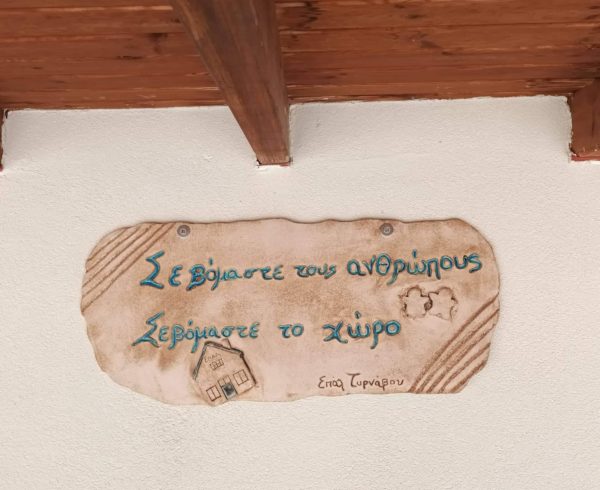 Σεβόμαστε τους ανθρώπους
Σεβόμαστε το χώρο
Επάλ Τυρνάβου